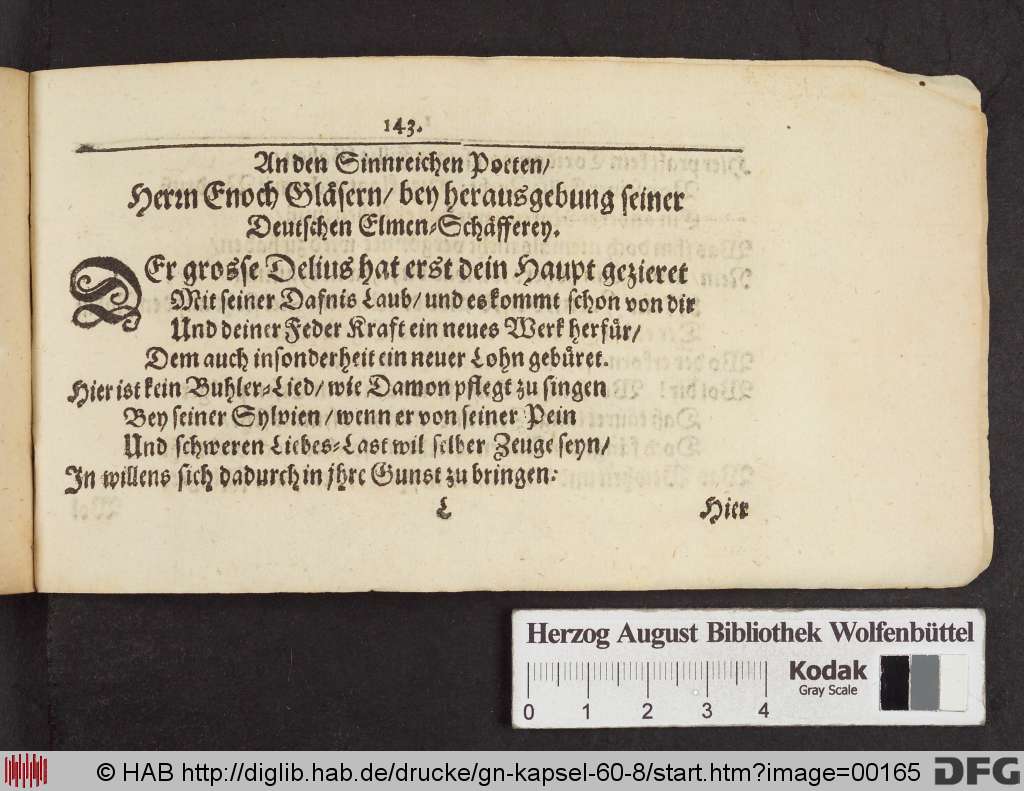 143.
An den Sinnreichen Poeten/
Herrn Enoch Gläsern/ bey herausgebung seiner
Deutschen Elmen-Schäfferey.
DEr grosse Delius hat erst dein Haupt gezieret
Mit seiner Dafnis Laub/ und es kommt schon von dir
Und deiner Feder Kraft ein neues Werk herfür/
Dem auch insonderheit ein neuer Lohn gebüret.
Hier ist kein Buhler-Lied/ wie Damon pflegt zu singen
Bey seiner Sylvien/ wenn er von seiner Pein
Und schweren Liebes-Last wil selber Zeuge seyn/
In willens sich dadurch in jhre Gunst zu bringen:
L Hier
Herzog August Bibliothek Wolfenbüttel
Kodak
Gray Scale
0 1 2 3 4
© HAB http://diglib.hab.de/drucke/gn-kapsel-60-8/start.htm?image=00165
DFG